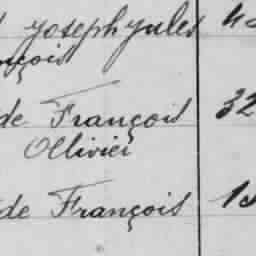 Joseph Jules
de François 32
Ollivier
de François